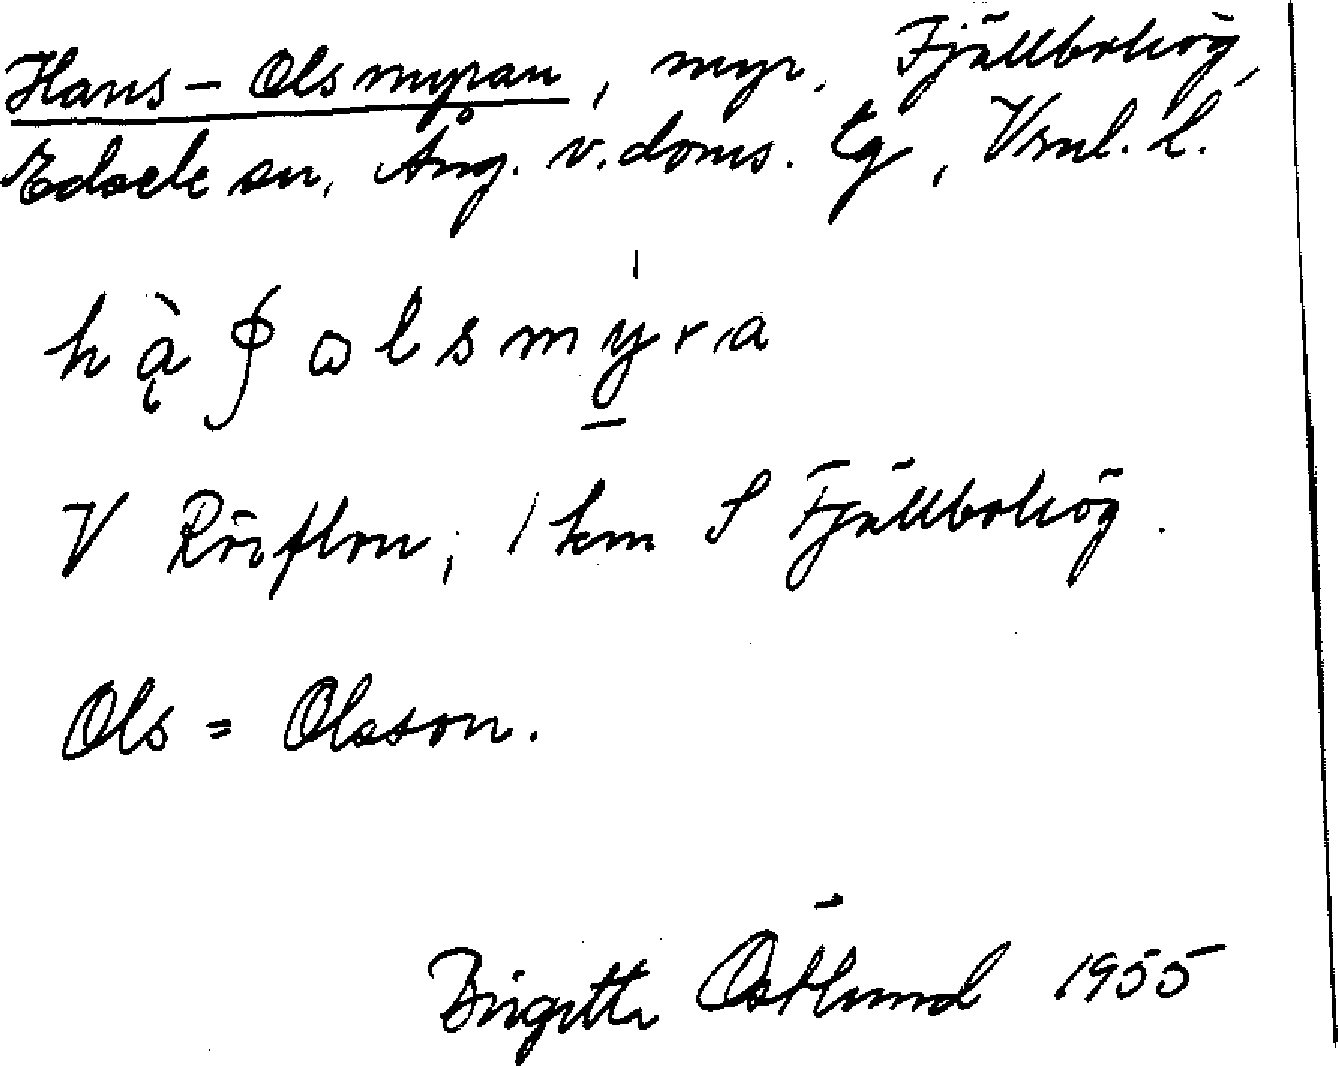 Hans-Olsmyran, myr, Fjällbohög,
Edsele sn, Ång. v. doms. tg, Vrnl. l.
V Röiflon, 1 km S Fjällbohög.
Ols = Olsson.
Birgitta Östlund 1955